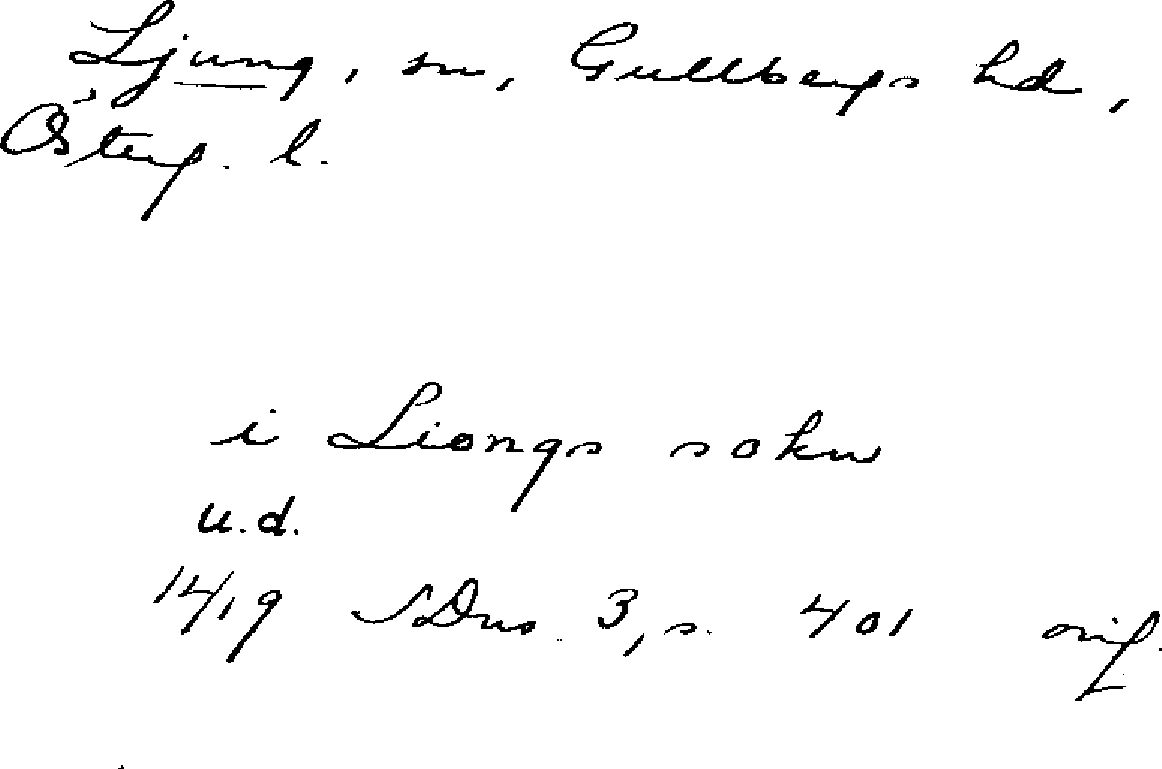 Ljung, sn, Gullbergs hd,
Österg. l.
i Liongs sokn
u.d.
14/19 SDns 3, s. 401 orig.